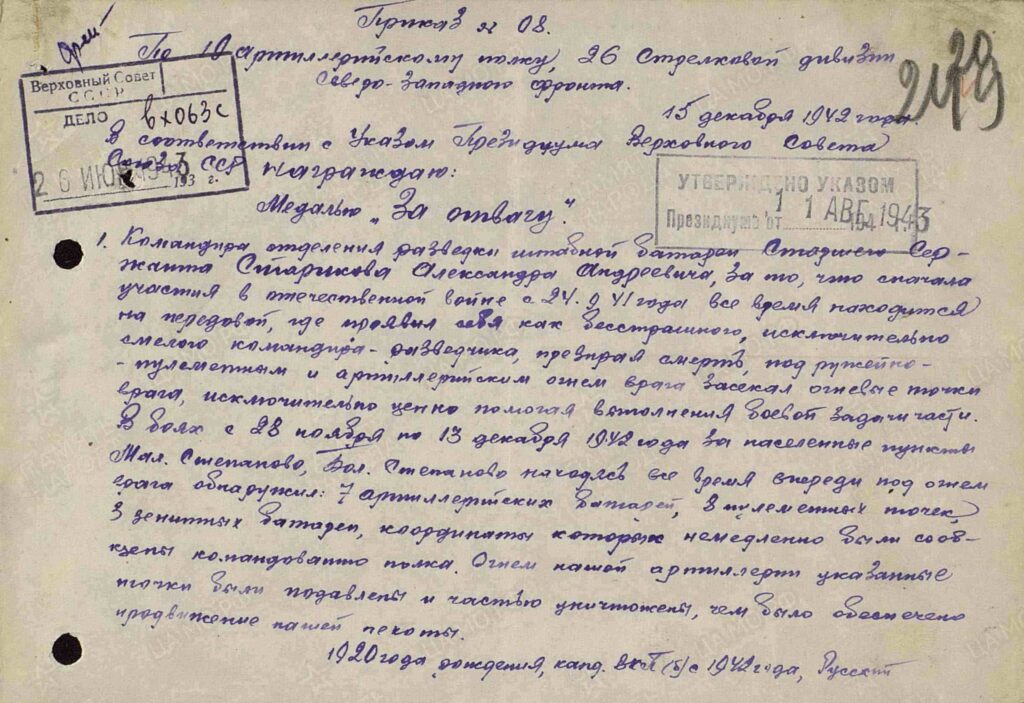 Приказ № 08.
По 19 артиллерийскому полку, 26 Стрелковой дивизии
Северо-Западного фронта.
Верховный Совет
СССР
ДЕЛО вх063с
26 ИЮЛ 1943
193 г.
15 декабря 1942 года.
В соответствии с Указом Президиума Верховного Совета
Союза ССР награждаю:
УТВЕРЖДЕНО УКАЗОМ
Президиума от 11 АВГ 1943
194
Медалью „За отвагу".
1. Командира отделения разведки штабной батареи Старшего Сер-
жанта Старикова Александра Андреевича, за то, что сначала
участия в отечественной войне с 24.9 41 года все время находится
на передовой, где проявил себя как бесстрашного, исключительно
смелого командира-разведчика, презирая смерть, под ружейно-
-пулеметным и артиллерийским огнем врага засекал огневые точки
врага, исключительно ценно помогая выполнения боевой задачи части.
В боях с 28 ноября по 13 декабря 1942 года за населенные пункты
Мал. Степаново, Бол. Степаново находясь все время впереди под огнем
врага обнаружил: 7 артиллерийских батарей, 8 пулеметных точек,
3 зенитных батареи, координаты которых немедленно были сооб-
щены командованию полка. Огнем нашей артиллерии указанные
точки были подавлены и частью уничтожены, чем было обеспечено
продвижение нашей пехоты.
1920 года рождения, канд. ВКП(б) с 1942 года, Русский